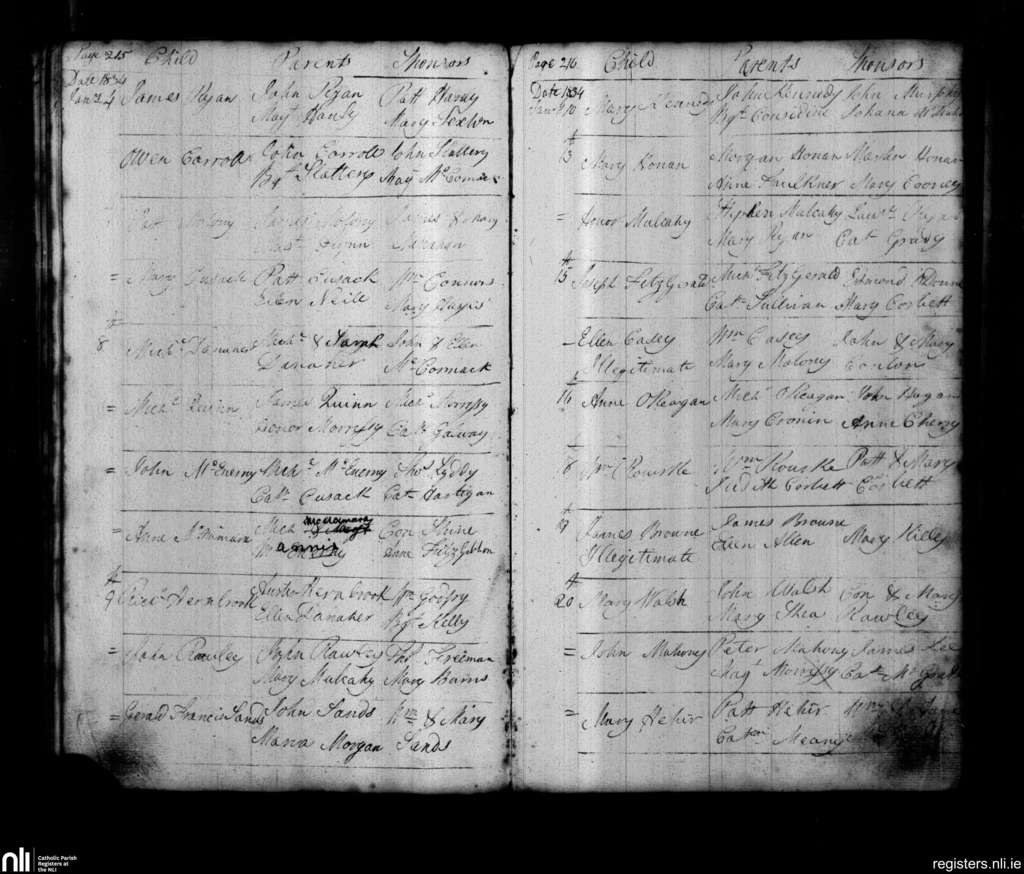 Page 215 Child Parents Sponsors
Date 1834
Jany 4 James Ryan John Ryan Patt Haney
Mary Sexton
Owen Carroll John Carroll John Slattery
Bgt Slattery Mary McCormack
Patt Molony James Molony James & Mary
Flynn
= Mary Cusack Patt Cusack Wm Connors
Ellen Neill Mary Hayes
8 Michl Danaher Michl & Sarah John & Ellen
Danaher McCormack
= Michl Quinn James Quinn Michl Morrissy
Honor Morrissy Cath Galway
= John McEnemy Michl McEnemy Thos Liddy
Cath Cusack Cat Hartigan
= Anne McNamara Mich McNamara Con
Anne FitzGibbon
9 Fernbrook Fernbrook Wm Godfry
Ellen Danaher Bgt Kelly
= John Rawley John Rawley Thos Freeman
Mary Mulcahy Mary Barns
= Gerald Francis Sands John Sands Wm & Mary
Maria Morgan Sands
Page 216 Child Parents Sponsors
Date 1834
Jany 10 Mary Kennedy John Kennedy John Murphy
Bgt Considine Johana
13 Mary Honan Morgan Honan Martin Honan
Anne Faulkner Mary Cooney
= Honor Mulcahy Stephen Mulcahy Lawce Ryan
Mary Ryan Cat Grady
15 Joseph FitzGerald Michl FitzGerald Edmond
Cath Sullivan Mary Corbett
Ellen Casey Wm Casey John & Mary
Illegitimate Mary Molony Conlon
16 Anne OKeagan Mich OKeagan John Hogan
Mary Cronin Anne Cherry
8 Wm Rourke Wm Rourke Patt & Mary
Judith Corbett Corbett
19 James Browne James Browne
Illegitimate Ellen Allen Mary Kieley
20 Mary Walsh John Walsh Con & Mary
Mary Shea Rawley
= John Mahony Peter Mahony James Lee
Magt Morrissy Cath McGrath
= Mary Hehir Patt Hehir
Cathn Meany
nli Catholic Parish
Registers at
the NLI
registers.nli.ie